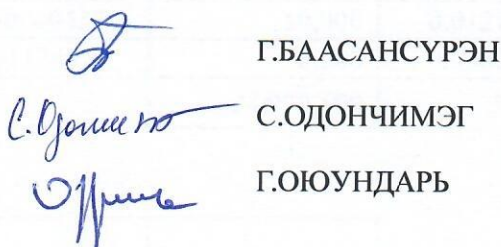 Г.БААСАНСҮРЭН
С.ОДОНЧИМЭГ
Г.ОЮУНДАРЬ